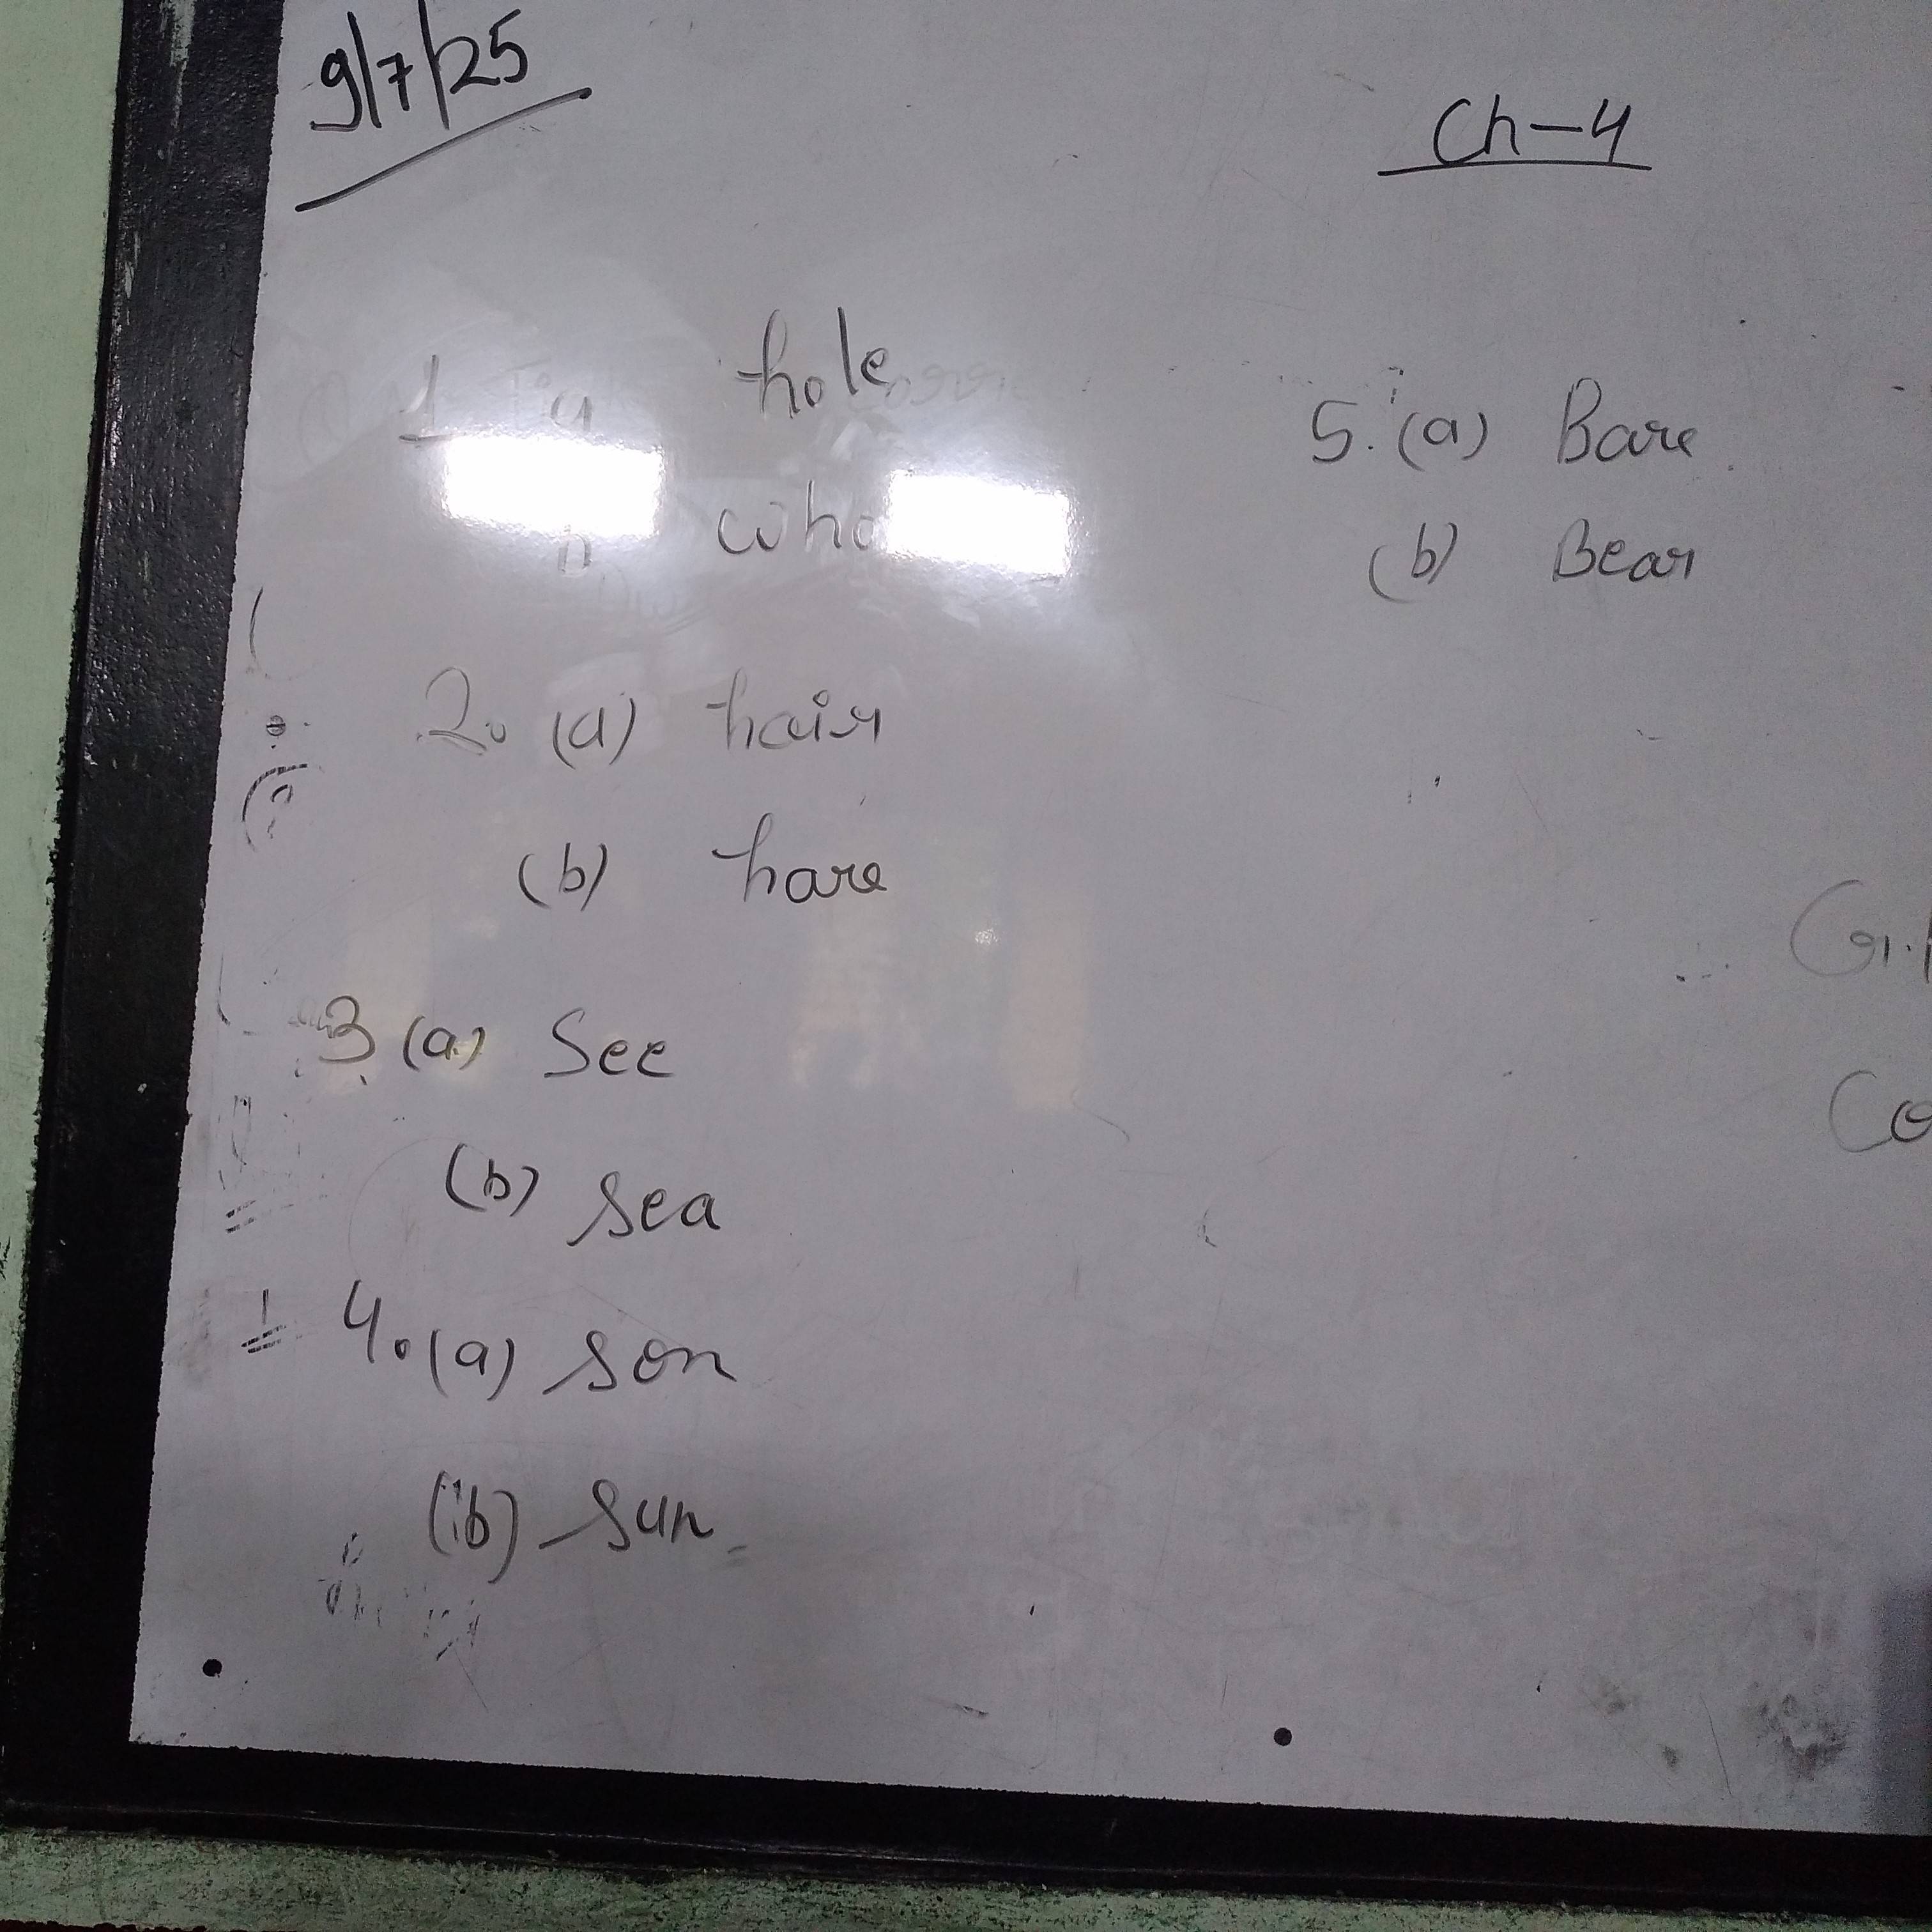 9/7/25
Ch-4
1 a hole
b
2. (a) hair
(b) hare
3. (a) See
(b) sea
4. (a) son
(b) sun
5. (a) Bare
(b) Bear